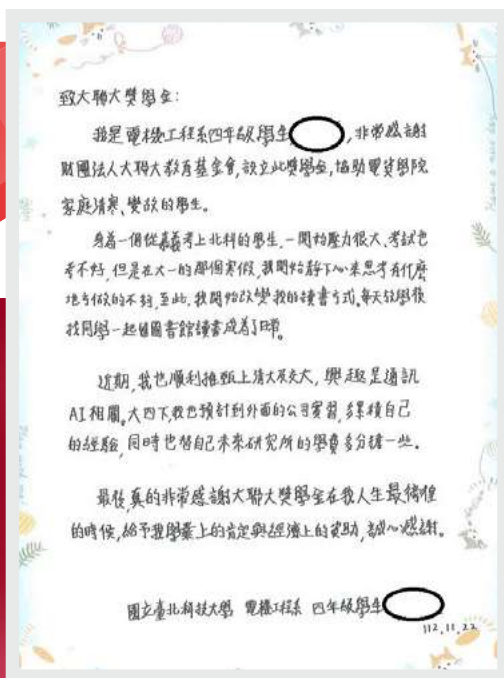 致大聯大獎學金:
我是電機工程系四年級學生,非常感謝
財團法人大聯大教育基金會,設立此獎學金,協助電資學院
家庭清寒、變故的學生。
身為一個從嘉義考上北科的學生,一開始壓力很大、考試也
考不好,但是在大一的那個寒假,我開始靜下心來思考有什麼
地方做的不夠,至此,我開始改變我的讀書方式,每天放學後
找同學一起留圖書館讀書成為日常。
近期,我也順利推甄上清大及交大,興趣是通訊
AI相關,大四下我也預計到外面的公司實習,多累積自己
的經驗,同時也替自己未來研究所的學費多分擔一些。
最後,真的非常感謝大聯大獎學金在我人生最徬徨
的時候,給予我學業上的肯定與經濟上的資助,誠心感謝。
國立臺北科技大學 電機工程系 四年級學生
112.11.22